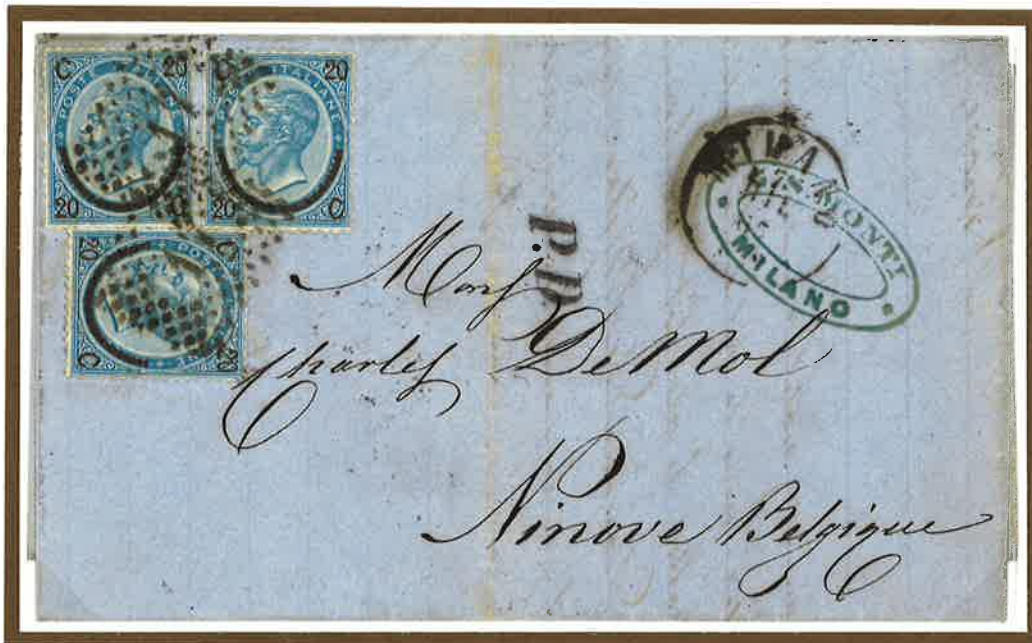 C 20
POSTE ITALIANE
20 C
C 20
POSTE ITALIANE
20 C
C 20
POSTE
20 C
P.D.
MONTI
MILANO
Monsʳ
Charles De Mol
Ninove Belgique